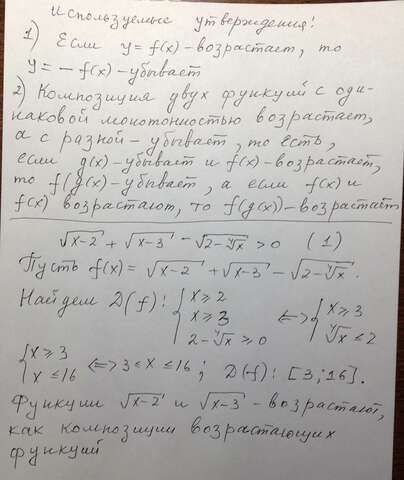 Используемые утверждения!
1) Если y = f(x) - возрастает, то
y = - f(x) - убывает
2) Композиция двух функций с оди-
наковой монотонностью возрастает,
а с разной - убывает, то есть,
если g(x) - убывает и f(x) - возрастает,
то f(g(x)) - убывает, а если f(x) и
f(x) возрастают, то f(g(x)) - возрастает
√(x-2) + √(x-3) - √(2-⁴√x) > 0 (1)
Пусть f(x) = √(x-2) + √(x-3) - √(2-⁴√x).
Найдем D(f): { x ≥ 2; x ≥ 3; 2-⁴√x ≥ 0 <=> { x ≥ 3; ⁴√x ≤ 2
{ x ≥ 3; x ≤ 16 <=> 3 ≤ x ≤ 16; D(f): [3;16].
Функции √(x-2) и √(x-3) - возрастают,
как композиции возрастающих
функций